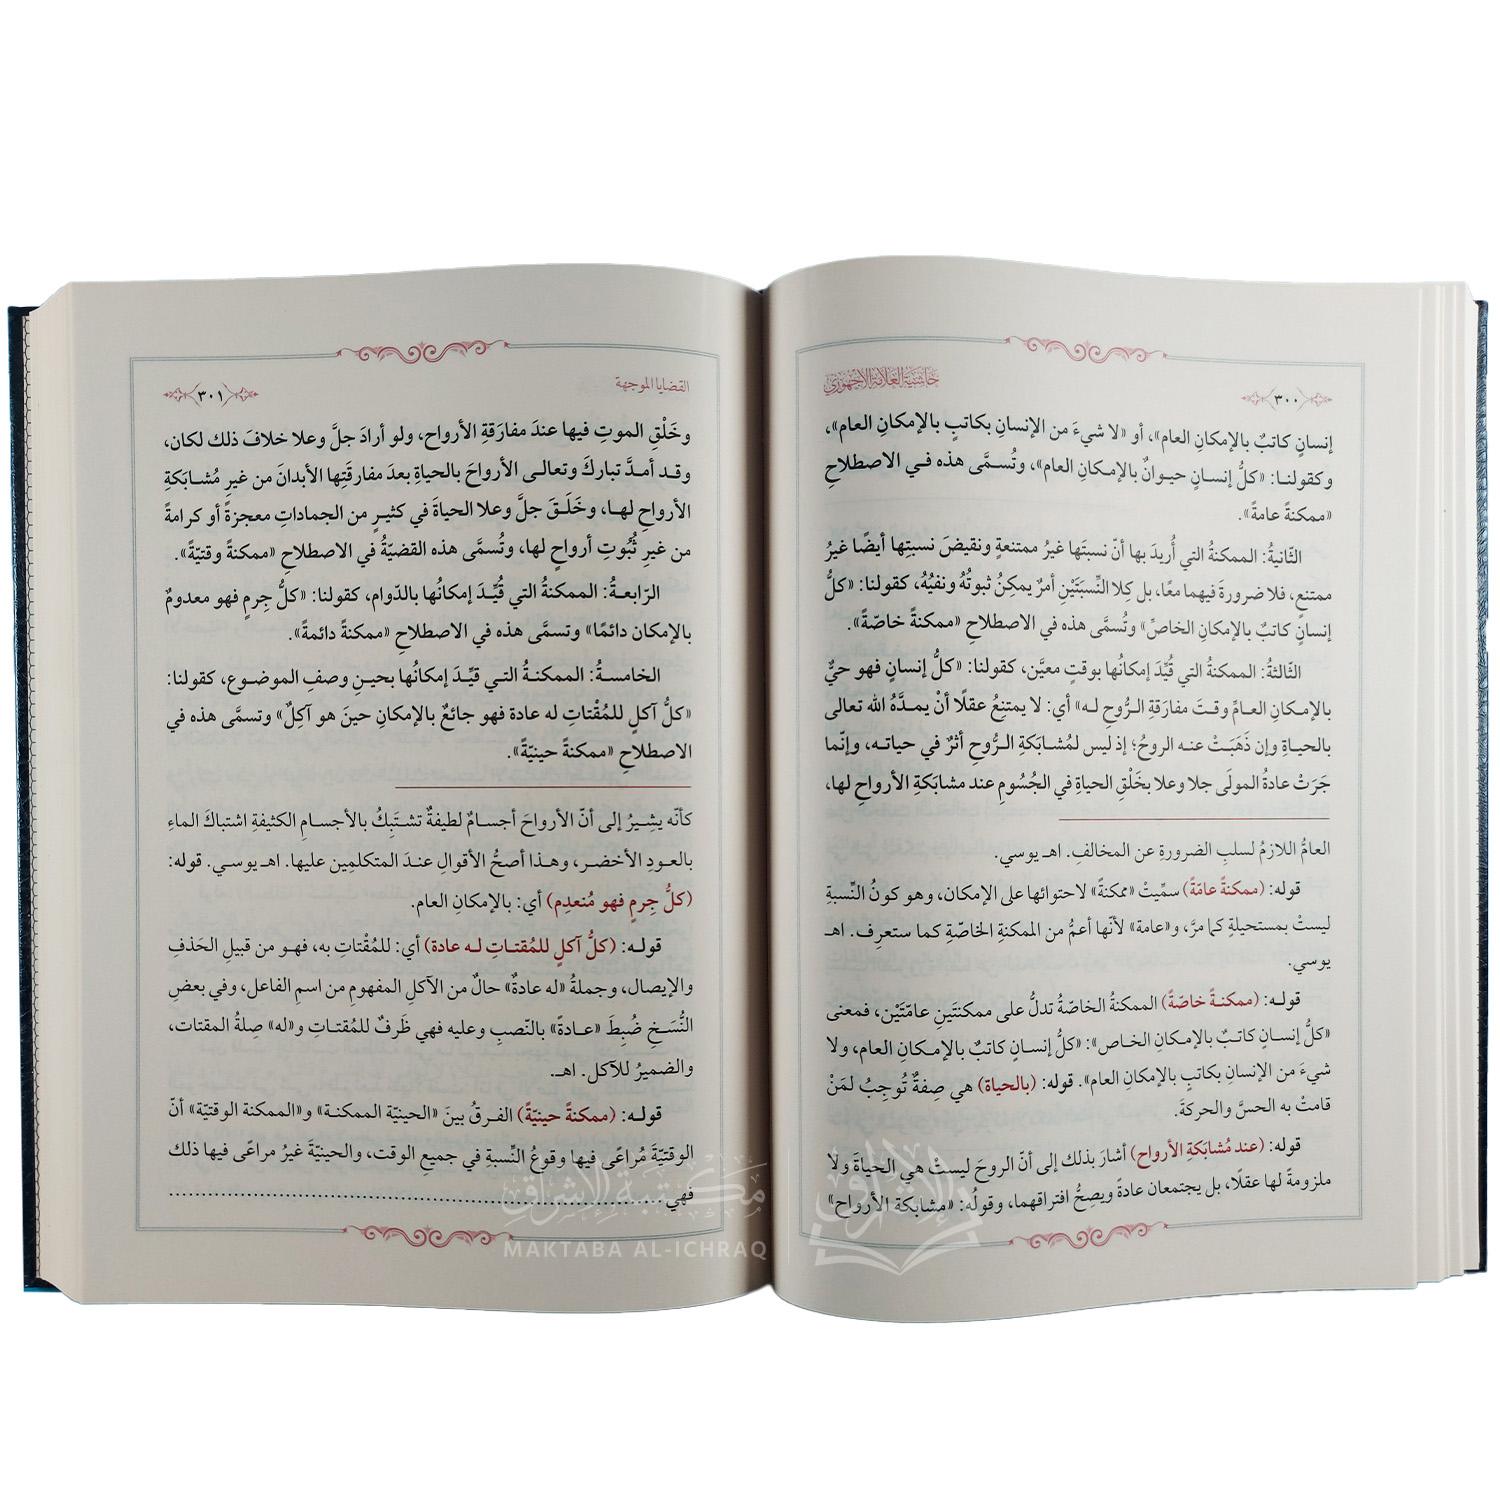 حاشية العلامة الأجهوري
٣٠٠
إنسانٍ كاتبٌ بالإمكانِ العام»، أو «لا شيءَ من الإنسانِ بكاتبٍ بالإمكانِ العام»،
وكقولنـا: «كلُّ إنسـانٍ حيـوانٌ بالإمكـانِ العام»، وتُسـمَّى هذه فـي الاصطلاحِ
«ممكنةً عامةً».
الثّانيةُ: الممكنةُ التي أُريدَ بها أنّ نسبتَها غيرُ ممتنعةٍ ونقيضَ نسبتِها أيضًا غيرُ
ممتنع، فلا ضرورةَ فيهما معًا، بل كِلا النِّسبَتَيْنِ أمرٌ يمكِنُ ثبوتُهُ ونفيُهُ، كقولنا: «كلُّ
إنسانٍ كاتبٌ بالإمكانِ الخاصِّ» وتُسمَّى هذه في الاصطلاحِ «ممكنةً خاصّةً».
الثّالثةُ: الممكنةُ التي قُيِّدَ إمكانُها بوقتٍ معيَّن، كقولنا: «كلُّ إنسانٍ فهو حيٌّ
بالإمـكانِ العـامِّ وقتَ مفارَقةِ الـرُّوحِ لـه» أي: لا يمتنِعُ عقلًا أنْ يمـدَّهُ الله تعالى
بالحيـاةِ وإن ذهَبَـتْ عنـه الروحُ؛ إذ ليس لمُشـابَكةِ الـرُّوحِ أثرٌ في حياتـه، وإنّما
جَرَتْ عادةُ المولَى جلا وعلا بخَلْقِ الحياةِ في الجُسُومِ عند مشابَكةِ الأرواحِ لها،
العامُّ اللازمُ لسلبِ الضرورةِ عن المخالفِ. اهـ يوسي.
قوله: (ممكنةً عامّةً) سمِّيتْ «ممكنةً» لاحتوائها على الإمكان، وهو كونُ النِّسبةِ
ليستْ بمستحيلةٍ كما مرَّ، و«عامة» لأنّها أعمُّ من الممكنةِ الخاصّةِ كما ستعرِف. اهـ
يوسي.
قولـه: (ممكنـةً خاصّةً) الممكنةُ الخاصّةُ تدلُّ على ممكنتَينِ عامّتَيْن، فمعنى
«كلُّ إنسـانٍ كاتبٌ بالإمـكانِ الخـاص»: «كلُّ إنسـانٍ كاتبٌ بالإمكـانِ العام، ولا
شيءَ من الإنسانِ بكاتبٍ بالإمكانِ العام». قوله: (بالحياة) هي صِفةٌ تُوجِبُ لمَنْ
قامتْ به الحسَّ والحركةَ.
قوله: (عند مُشابَكةِ الأرواح) أشارَ بذلك إلى أنّ الروحَ ليستْ هي الحياةَ ولا
ملزومةً لها عقلًا، بل يجتمعان عادةً ويصِحُّ افتراقهما، وقولُه: «مشابكة الأرواح»
القضايا الموجهة
٣٠١
وخَلْقِ الموتِ فيها عندَ مفارَقةِ الأرواح، ولو أرادَ جلَّ وعلا خلافَ ذلك لكان،
وقـد أمـدَّ تبـاركَ وتعالـى الأرواحَ بالحياةِ بعدَ مفارقَتِها الأبدانَ من غيرِ مُشـابَكةِ
الأرواحِ لهـا، وخَلَـقَ جلَّ وعلا الحياةَ في كثيـرٍ من الجماداتِ معجزةً أو كرامةً
من غيرِ ثُبُوتِ أرواحٍ لها، وتُسمَّى هذه القضيّةُ في الاصطلاحِ «ممكنةً وقتيّةً».
الرّابعـةُ: الممكنةُ التي قُيِّـدَ إمكانُها بالدّوام، كقولنا: «كلُّ جِرمٍ فهو معدومٌ
بالإمكان دائمًا» وتسمَّى هذه في الاصطلاحِ «ممكنةً دائمةً».
الخامسـةُ: الممكنـةُ التـي قيِّـدَ إمكانُها بحيـنِ وصفِ الموضـوع، كقولنا:
«كلُّ آكلٍ للمُقْتاتِ له عادة فهو جائعٌ بالإمكانِ حينَ هو آكِلٌ» وتسمَّى هذه في
الاصطلاحِ «ممكنةً حينيّةً».
كأنّه يشِيرُ إلى أنّ الأرواحَ أجسـامٌ لطيفةٌ تشـتَبِكُ بالأجسـامِ الكثيفةِ اشتباكَ الماءِ
بالعـودِ الأخضـر، وهـذا أصحُّ الأقوالِ عنـدَ المتكلمِين عليها. اهـ يوسـي. قوله:
(كلُّ جِرمٍ فهو مُنعدِم) أي: بالإمكانِ العام.
قولـه: (كلُّ آكلٍ للمُقتـاتِ لـه عادة) أي: للمُقْتاتِ به، فهـو من قبيلِ الحَذفِ
والإيصال، وجملةُ «له عادةٌ» حالٌ من الآكلِ المفهومِ من اسمِ الفاعل، وفي بعضِ
النُّسَـخِ ضُبِطَ «عـادةً» بالنّصبِ وعليه فهي ظَرفٌ للمُقتـاتِ و«له» صِلةُ المقتات،
والضميرُ للآكل. اهـ.
قولـه: (ممكنةً حينيّةً) الفـرقُ بينَ «الحينيّة الممكنـة» و«الممكنة الوقتيّة» أنّ
الوقتيّةَ مُراعًى فيها وقوعُ النِّسبةِ في جميعِ الوقت، والحينيّةَ غيرُ مراعًى فيها ذلك
فهي................................................
مكتبة الإشراق
MAKTABA AL-ICHRAQ
الإشراق